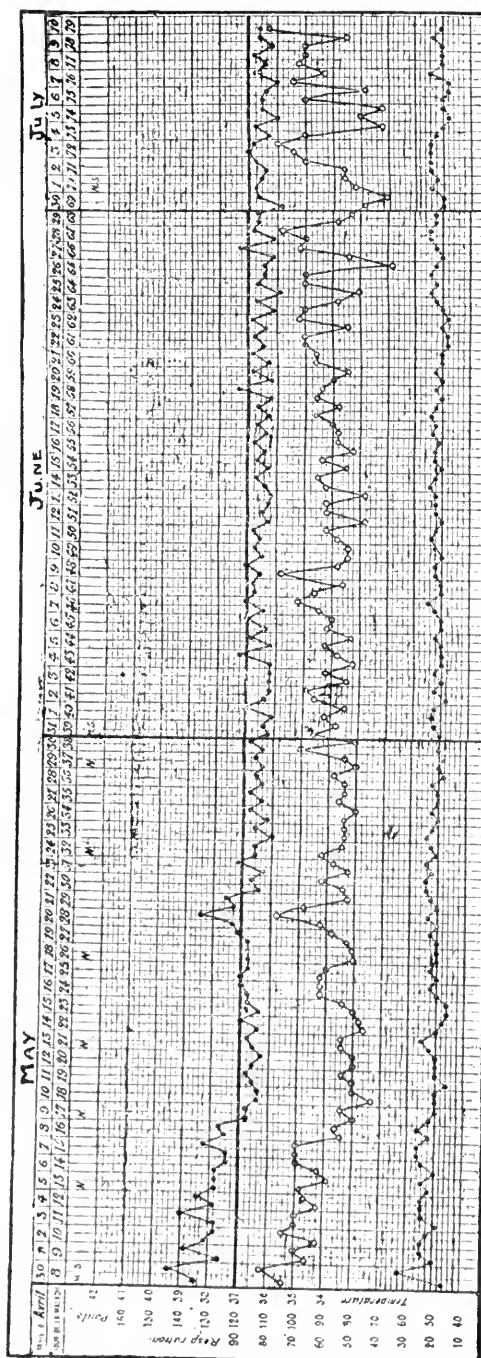 MAY JUNE JULY
Avril 30 1 2 3 4 5 6 7 8 9 10 11 12 13 14 15 16 17 18 19 20 21 22 23 24 25 26 27 28 29 30 31 1 2 3 4 5 6 7 8 9 10 11 12 13 14 15 16 17 18 19 20 21 22 23 24 25 26 27 28 29 30 1 2 3 4 5 6 7 8 9 10
8 9 10 11 12 13 14 15 16 17 18 19 20 21 22 23 24 25 26 27 28 29 30 31 32 33 34 35 36 37 38 39 40 41 42 43 44 45 46 47 48 49 50 51 52 53 54 55 56 57 58 59 60 61 62 63 64 65 66 67 68 69 70 71 72 73 74 75 76 77 78 79
M.S. N N N N N N M.S. M.S.
42
Pouls
160 41
150 40
140 39
130 38
Respiration
90 120 37
80 110 36
70 100 35
60 90 34
50 80
40 70
Temperature
30 60
20 50
10 40